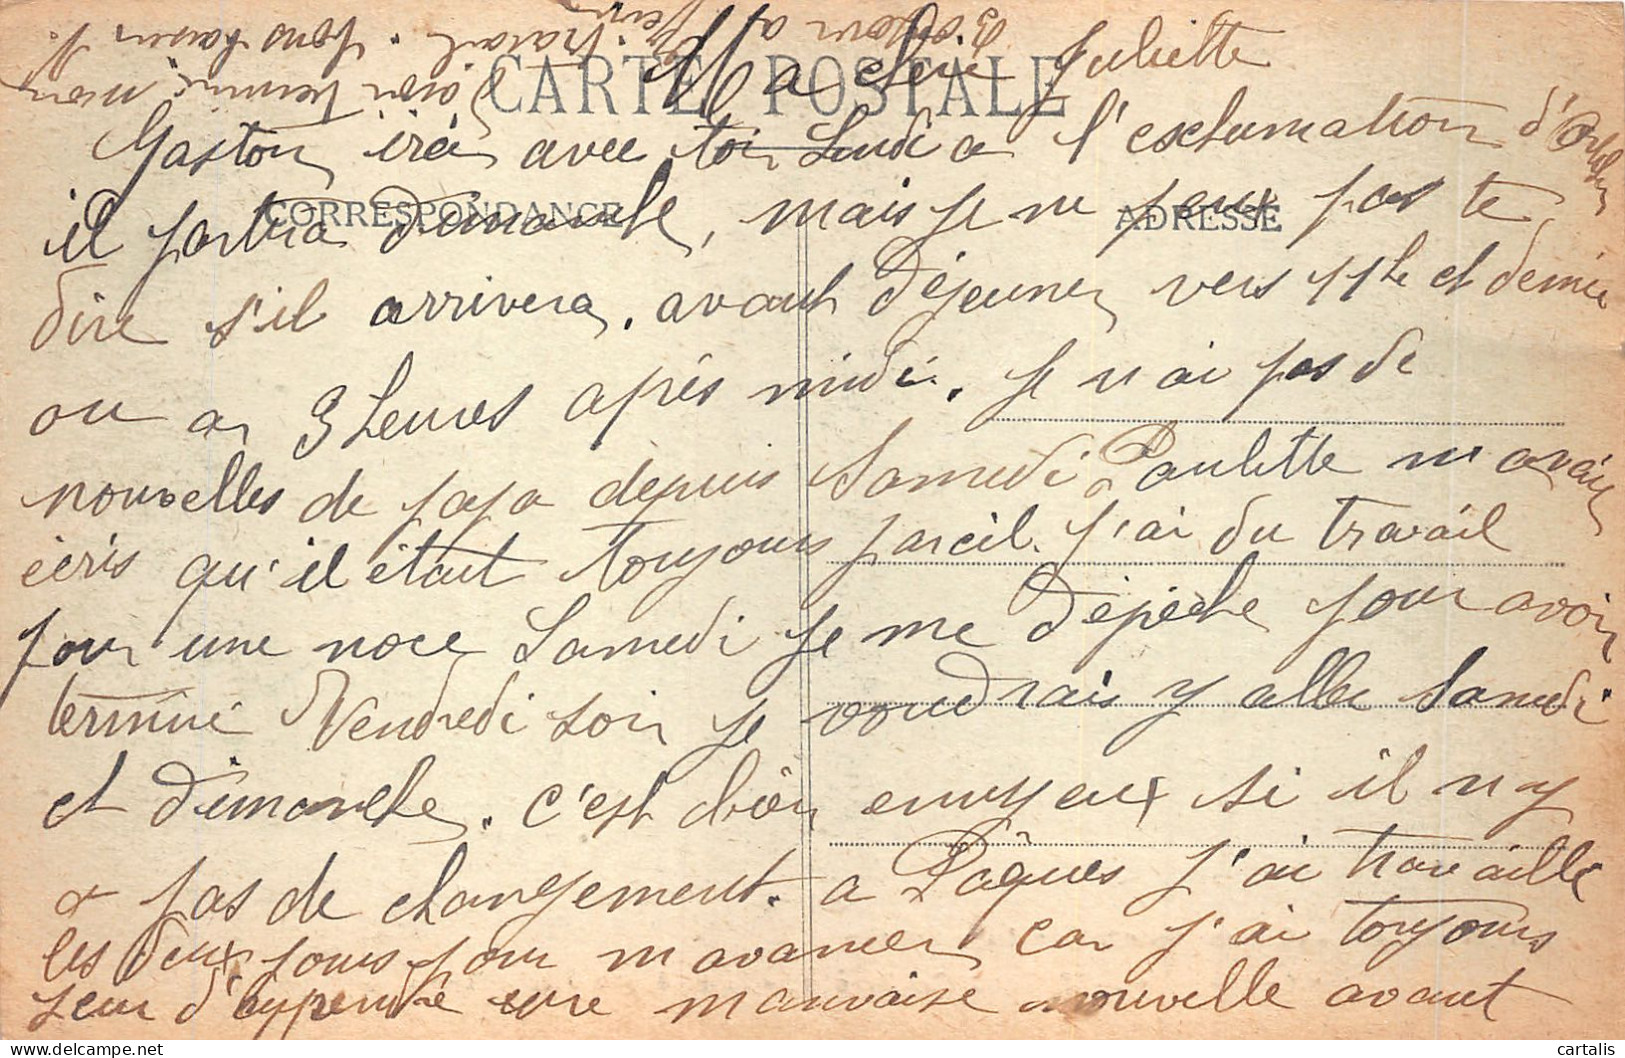 CARTE POSTALE
Ma chère Juliette
Gaston ira avec toi Lundi a l'exclumation d'
CORRESPONDANCE
ADRESSE
il partira dimanche, mais je ne peux pas te
dire s'il arrivera. avant déjeuner vers 11h et demie
ou a 3 heures après midi. je n'ai pas de
nouvelles de papa depuis Samedi Paulette m'avais
écris qu'il était toujours pareil. j'ai du travail
pour une noce Samedi je me dépêche pour avoir
terminé Vendredi soir je voudrais y aller Samedi
et dimanche. c'est bien ennyeux si il n'y
a pas de changement. a Pâques j'ai travaillé
les deux jours pour m'avancer car j'ai toujours
peur d'apprendre une mauvaise nouvelle avant
d'avoir terminé mon
travail. bons baisers